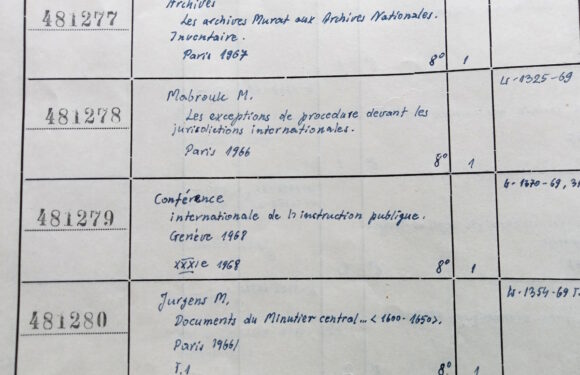 481277
Archives
Les archives Murat aux Archives Nationales.
Inventaire.
Paris 1967
8° 1
481278
Mabrouk M.
Les exceptions de procedure devant les
jurisdictions internationales.
Paris 1966
8° 1
Is-1325-69
481279
Conférence
internationale de l'instruction publique.
Genève 1968
XXXIe 1968
8° 1
481280
Jurgens M.
Documents du Minutier central... <1600-1650>.
Paris 1966/
T.1
8° 1